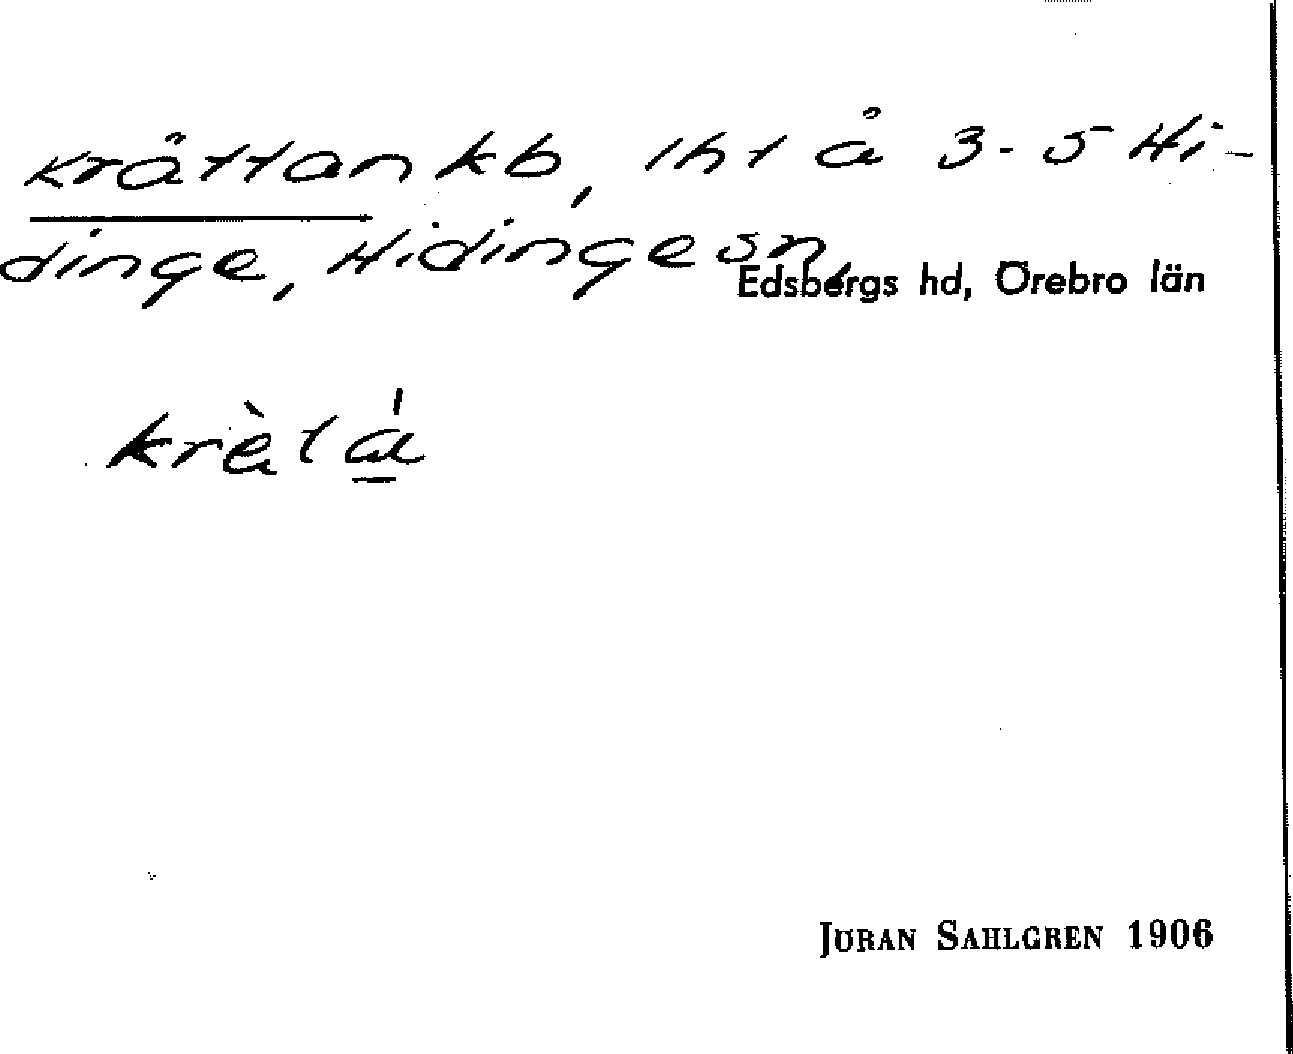 Kråttan kb, lht å 3-5 Hi-
dinge, Hidinge sn,
Edsbergs hd, Örebro län
JÖRAN SAHLGREN 1906